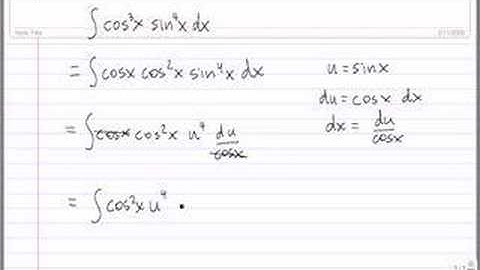 ∫ cos³x sin⁴x dx
= ∫ cosx cos²x sin⁴x dx
u = sinx
du = cosx dx
dx = du/cosx
= ∫ cosx cos²x u⁴ du/cosx
= ∫ cos²x u⁴ ·